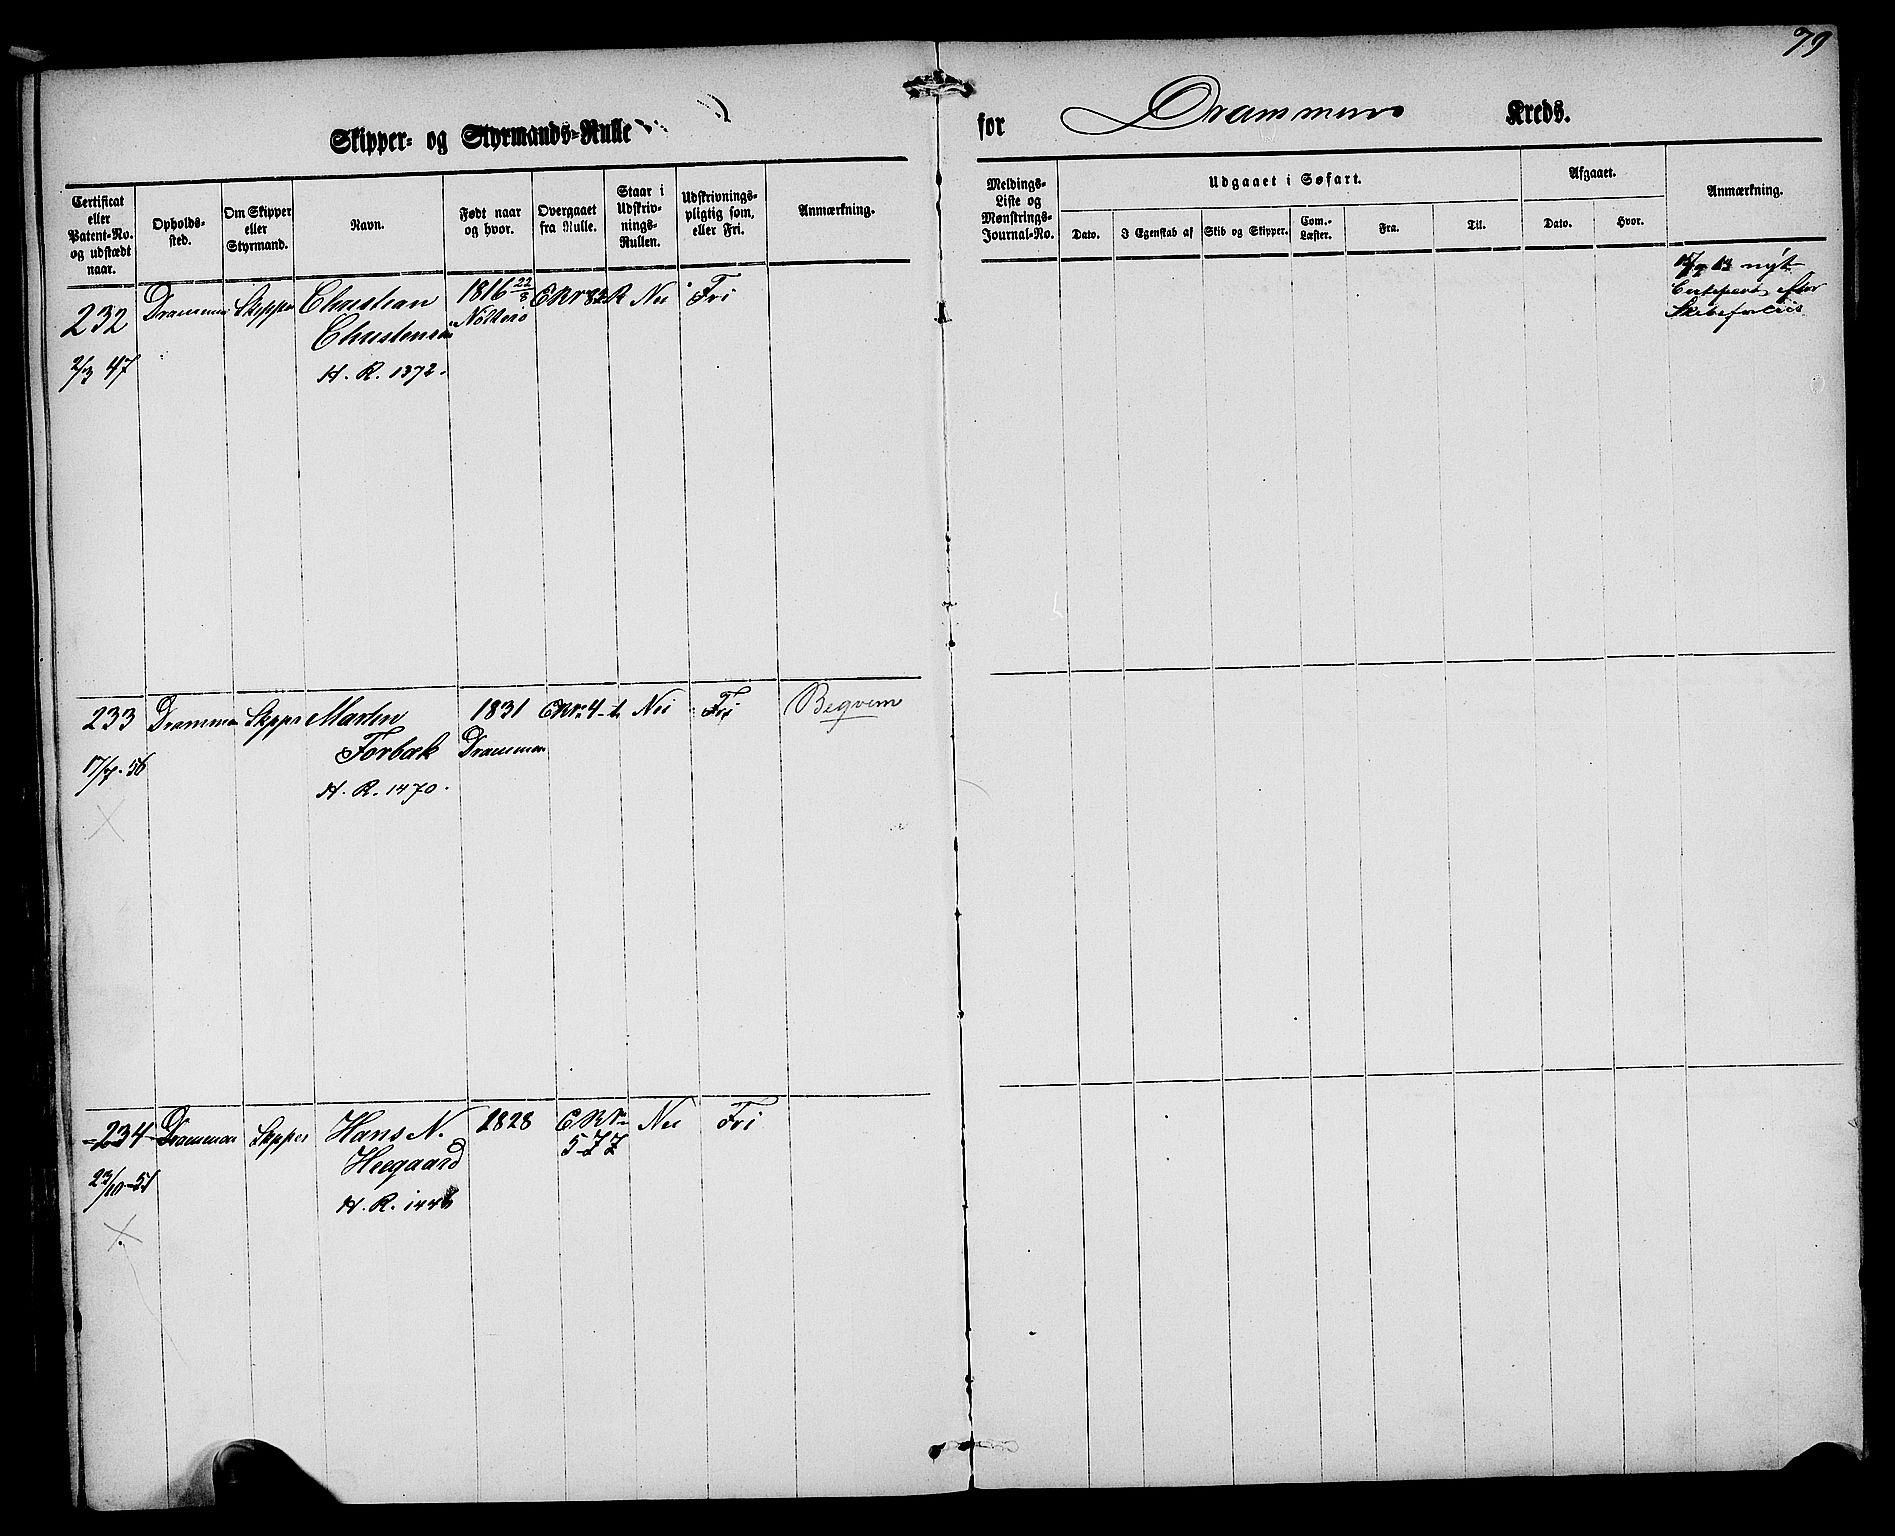 79
Skipper- og Styrmands-Rulle for Drammens Kreds.
Certificat eller Patent-No. og udstædt naar.
Opholds-sted.
Om Skipper eller Styrmand.
Navn.
Født naar og hvor.
Overgaaet fra Rulle.
Staar i Udskriv-nings-Rullen.
Udskrivnings-pligtig som, eller Fri.
Anmærkning.
Meldings-Liste og Mønstrings-Journal-No.
Udgaaet i Søfart.
Dato.
I Egenskab af
Skib og Skipper.
Com.-Læster.
Fra.
Til.
Afgaaet.
Dato.
Hvor.
Anmærkning.
232 Drammen Skipper Christian 1816 22/8 Nei Fri
Christensen
2/3 47 H. R. 1372.
nyt
efter
233 Drammen Skipper Martin 1831 Nei Fri Begvem
Forbæk Drammen
17/7-56 H. R. 1470.
234 Drammen Skipper Hans N. 1828 Nei Fri
Heegaard 577
23/10-51 H. R. 1446